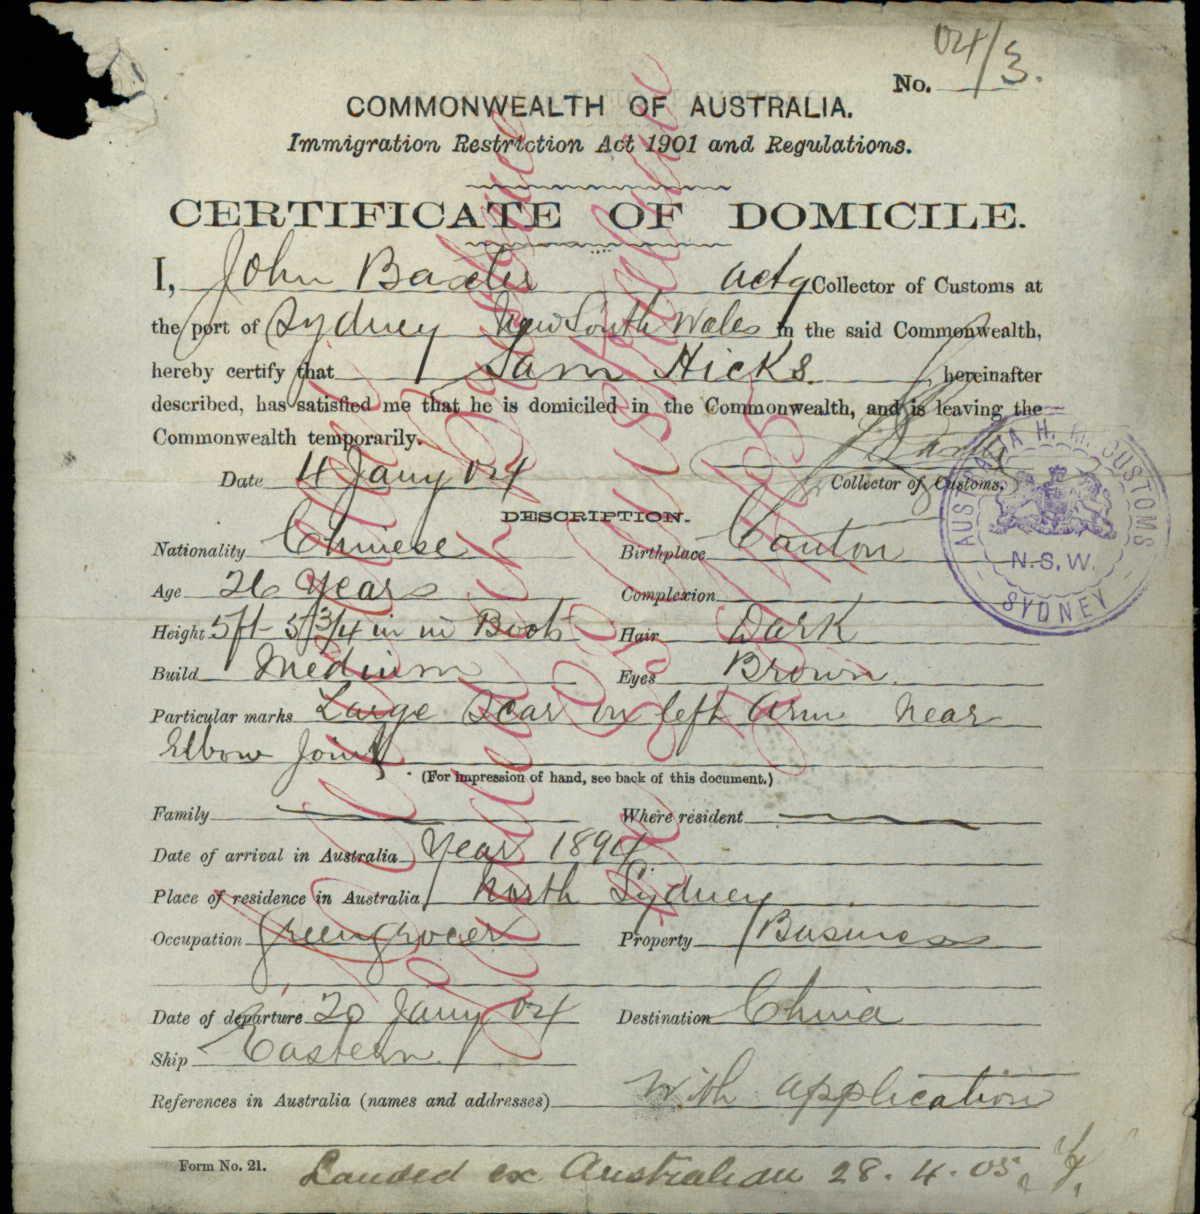 No. 04/3.
COMMONWEALTH OF AUSTRALIA.
Immigration Restriction Act 1901 and Regulations.
CERTIFICATE OF DOMICILE.
I, John Baxter actg Collector of Customs at
the port of Sydney New South Wales in the said Commonwealth,
hereby certify that Sam Hicks. hereinafter
described, has satisfied me that he is domiciled in the Commonwealth, and is leaving the
Commonwealth temporarily.
J Baxter
Date 4 Jany 04 Collector of Customs.
AUSTRALIA H. M. CUSTOMS
N.S.W.
SYDNEY
DESCRIPTION.
Nationality Chinese Birthplace Canton
Age 26 Years Complexion
Height 5ft 5 3/4 in in Boots Hair Dark
Build Medium Eyes Brown.
Particular marks Large Scar on left Arm near
Elbow Joint
(For impression of hand, see back of this document.)
Family Where resident
Date of arrival in Australia Year 1894
Place of residence in Australia North Sydney
Occupation Greengrocer Property Business
Date of departure 20 Jany 04 Destination China
Ship Eastern
References in Australia (names and addresses) With application
Form No. 21. Landed ex Australian 28.4.05.